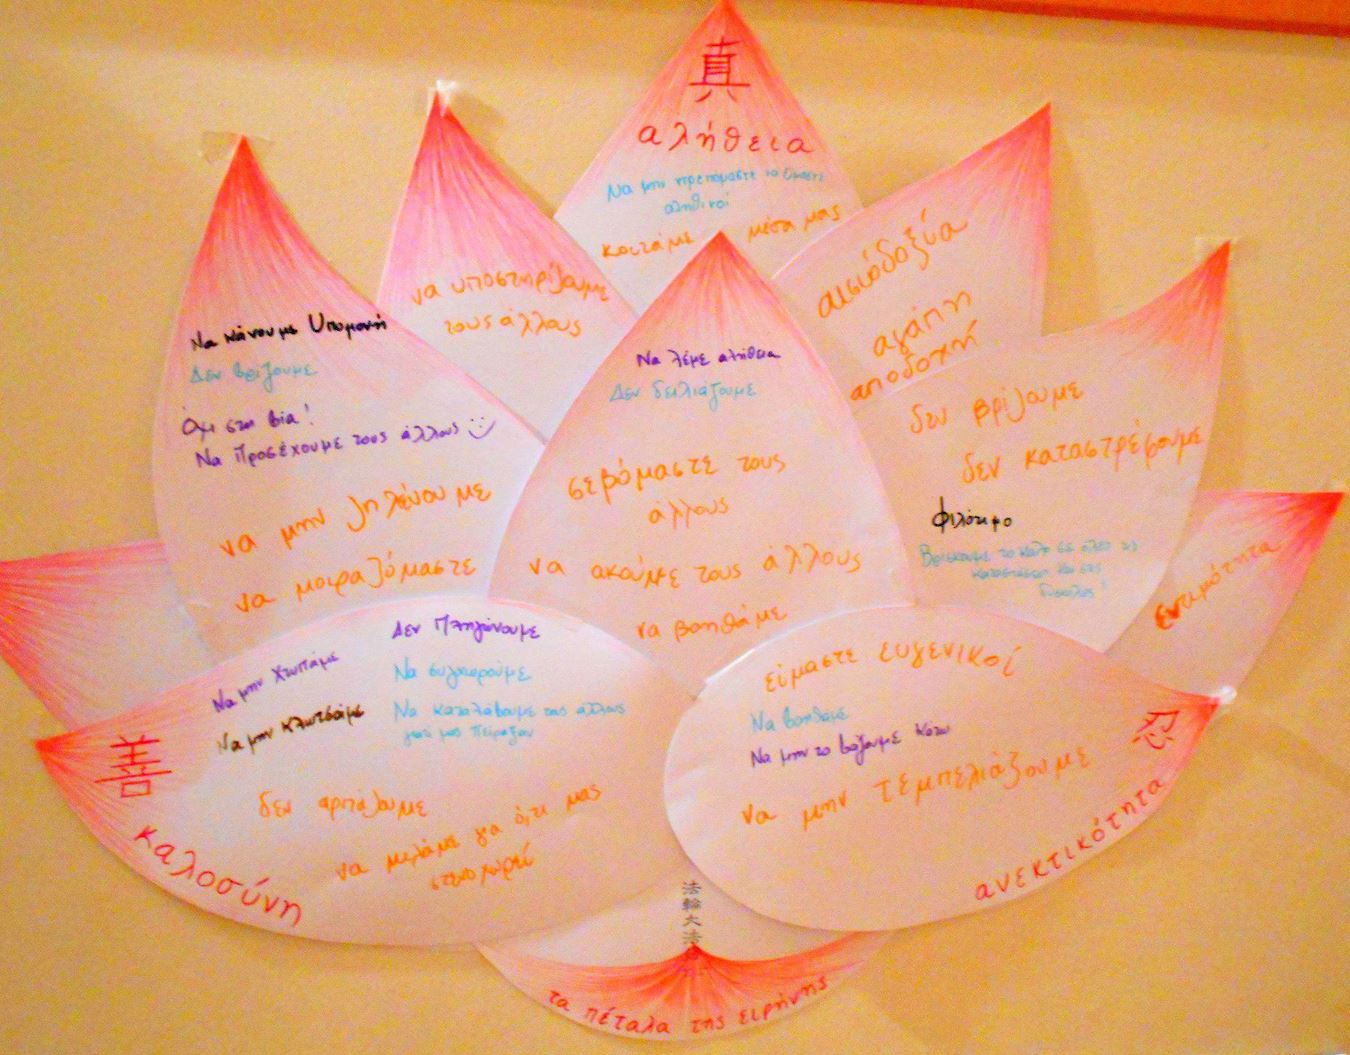 真
αλήθεια
Να μην ντρεπόμαστε να είμαστε
αληθινοί
κοιτάμε μέσα μας
να υποστηρίζουμε
τους άλλους
αισιόδοξία
αγάπη
αποδοχή
Να κάνουμε Υπομονή
Δεν βρίζουμε
Όχι στη βία!
Να Προσέχουμε τους άλλους
να μην ζηλένουμε
να μοιραζόμαστε
Να λέμε αλήθεια
Δεν δειλιάζουμε
σεβόμαστε τους
άλλους
να ακούμε τους άλλους
να βοηθάμε
δεν βρίζουμε
δεν καταστρέφουμε
Φιλότιμο
Βρίσκουμε το καλό σε όλες τις
καταστάσεις και στις
δύσκολες!
εντιμότητα
Δεν Πληγώνουμε
Να μην Χτυπάμε
Να συγχωρούμε
Να μην κλωτσάμε
Να καταλάβουμε τους άλλους
γιατί μας πείραξαν
善
δεν αρπάζουμε
να μιλάμε για ό,τι μας
στενοχωρεί
καλοσύνη
είμαστε ευγενικοί
Να βοηθάμε
Να μην το βάζουμε κάτω
忍
να μην τεμπελιάζουμε
ανεκτικότητα
法輪大法
τα πέταλα της ειρήνης